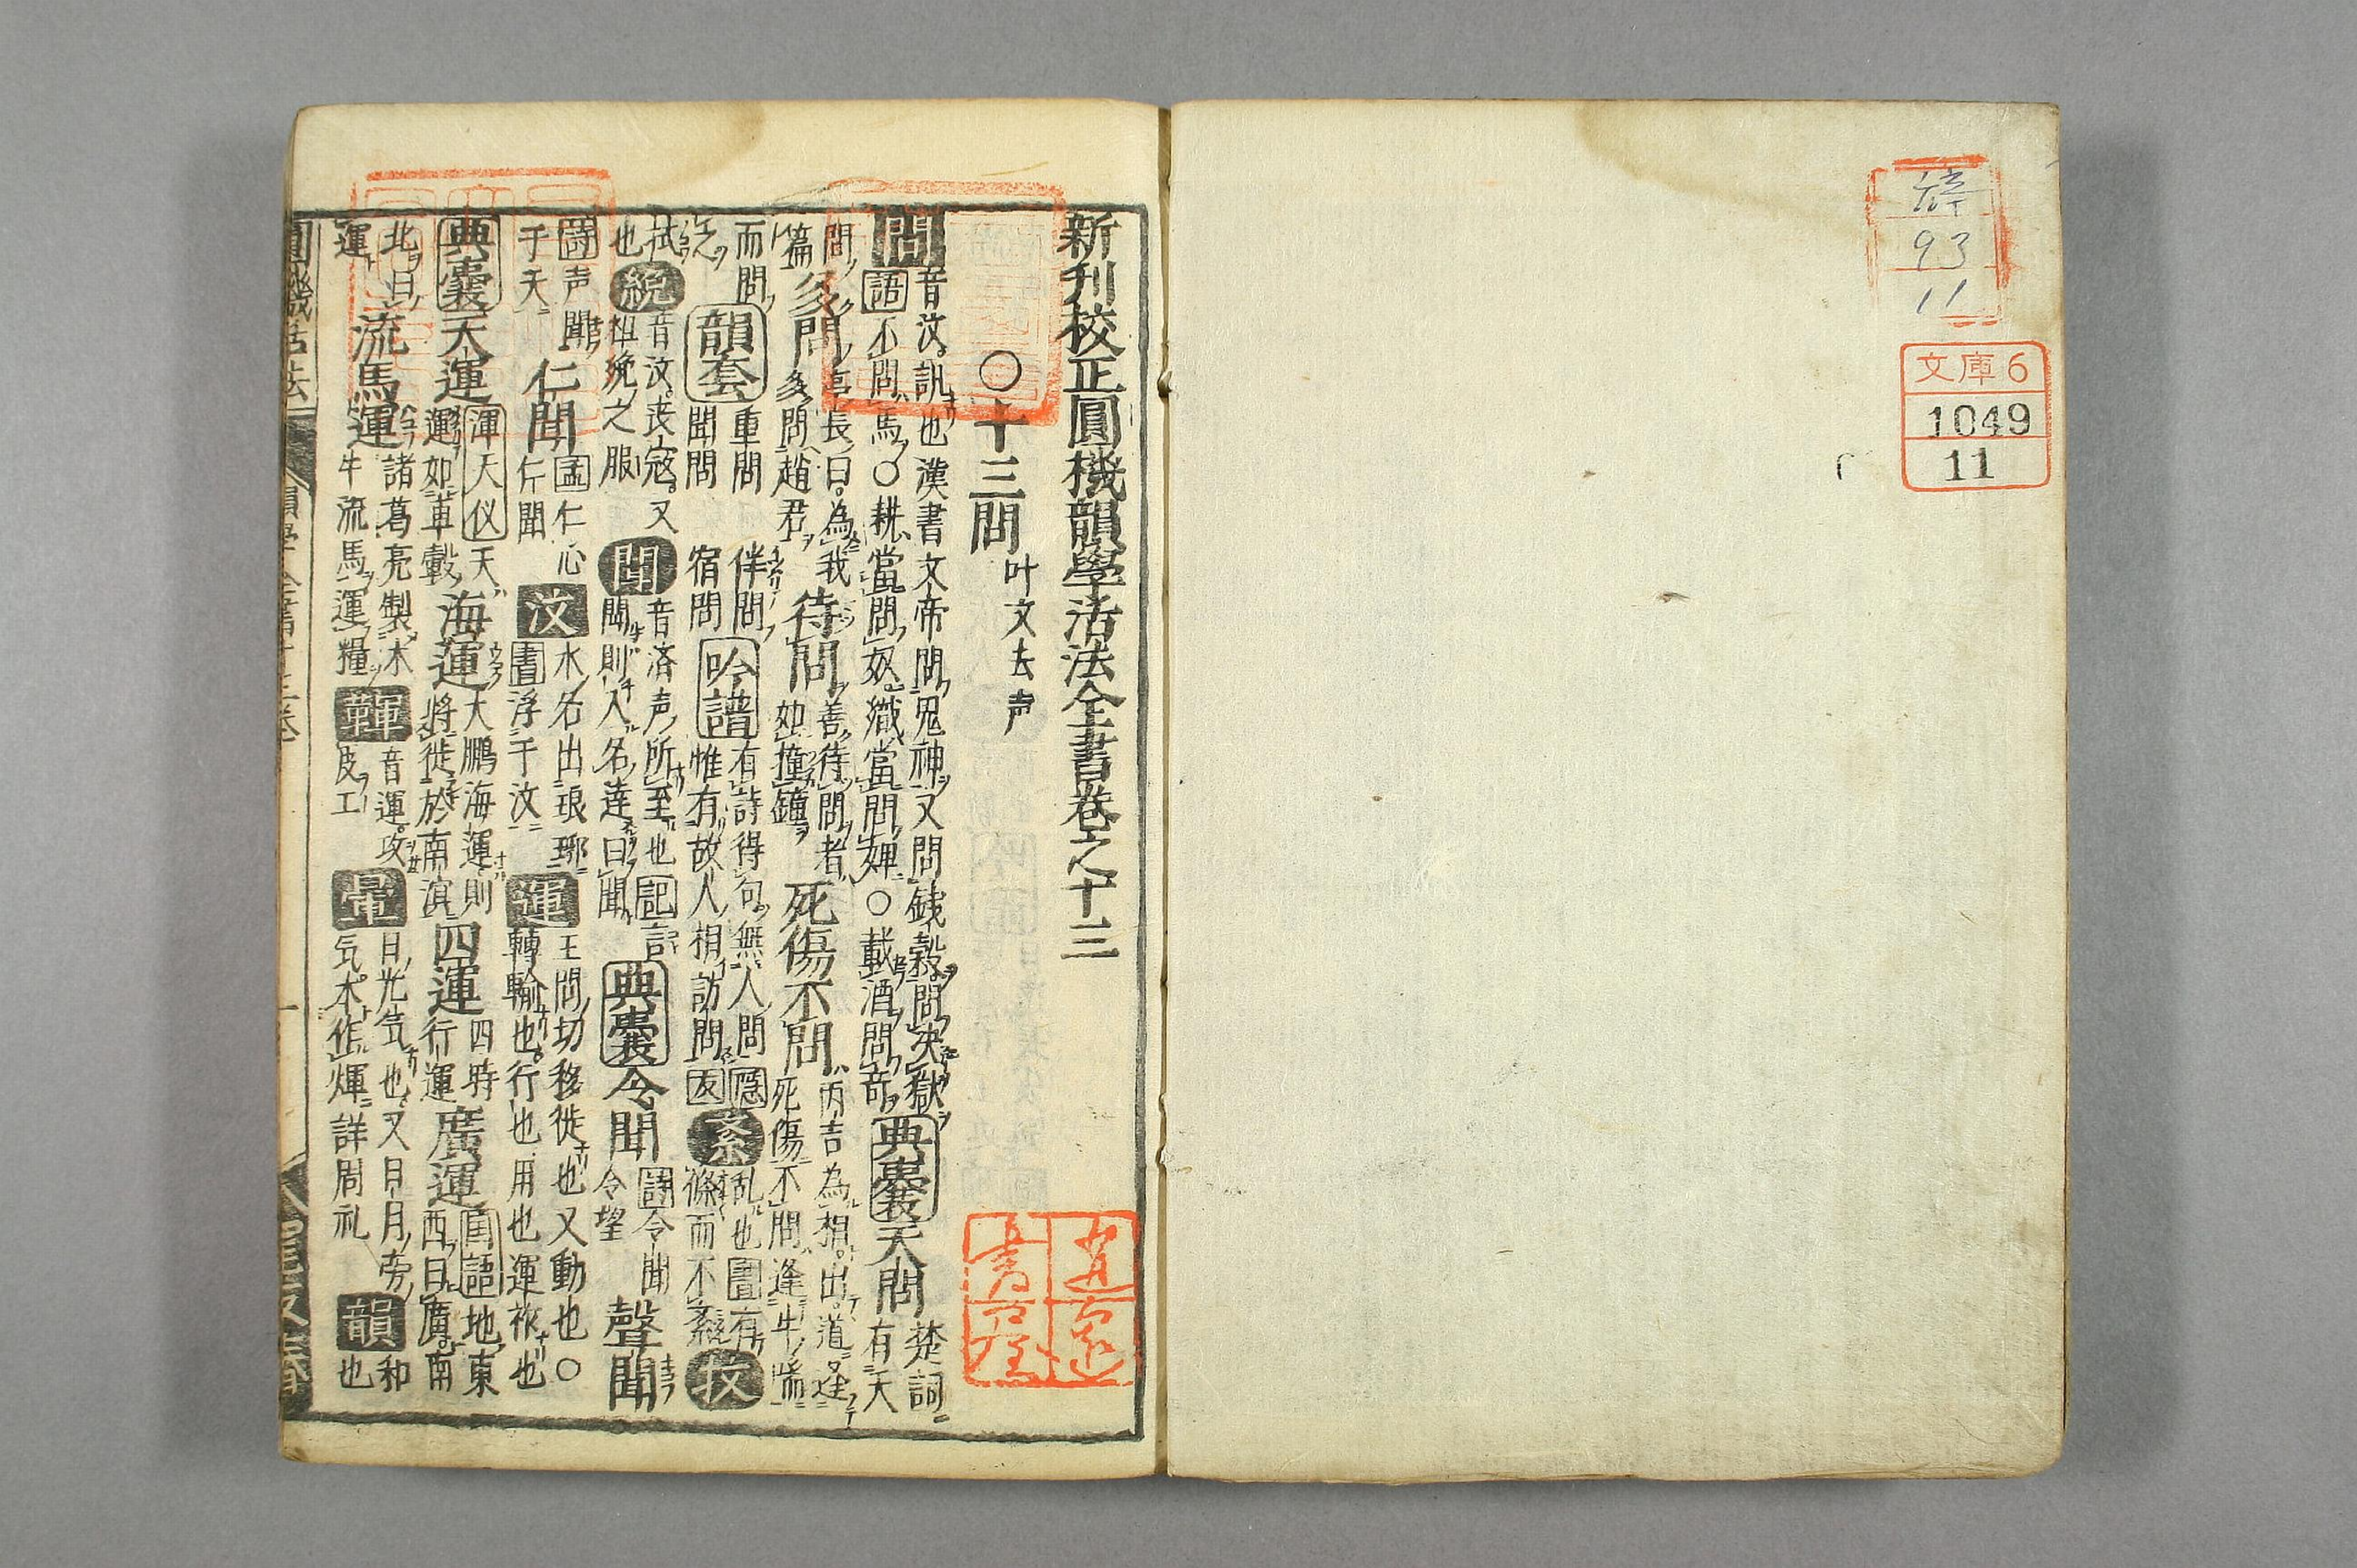 文庫6
1049
11
93
11
新刊校正圓機韻學活法全書卷之十三
○十三問 叶文去声
問 音汶訊也漢書文帝問鬼神又問錢穀問決獄
語 不問馬○耕當問奴織當問婢○載酒問奇
典囊 天問 楚詞有天
問篇 多問 亭長曰為我多問趙君 待問 善待問者如撞鐘 死傷不問 丙吉為相出道逢死傷不問逢牛喘
而問 韻套 重問 聞問 伴問 宿問 吟譜 有詩得句無人問 惟有故人相訪問 友 紊 乱也 書 有條而不紊 抆
拭也 絻 音汶喪冠又袒絻之服 聞 音汶声所至也 記 聞則人名達曰聞 典囊 令聞 詩 令聞令望 聲聞
詩 声聞于天 仁聞 孟 仁心仁聞 汶 水名出琅琊 書 浮于汶 運 王問切移徙也又動也○轉輸也行也用也運祚也
典囊 天運 渾天仪 天運如車轂 海運 大鵬海運則將徙於南溟 四運 四時行運 廣運 国語 地東西曰廣南
北曰運 流馬運 諸葛亮製木牛流馬運糧 韗 音運攻皮工 暈 日光気也又日月旁気本作煇詳周礼 韻 和也